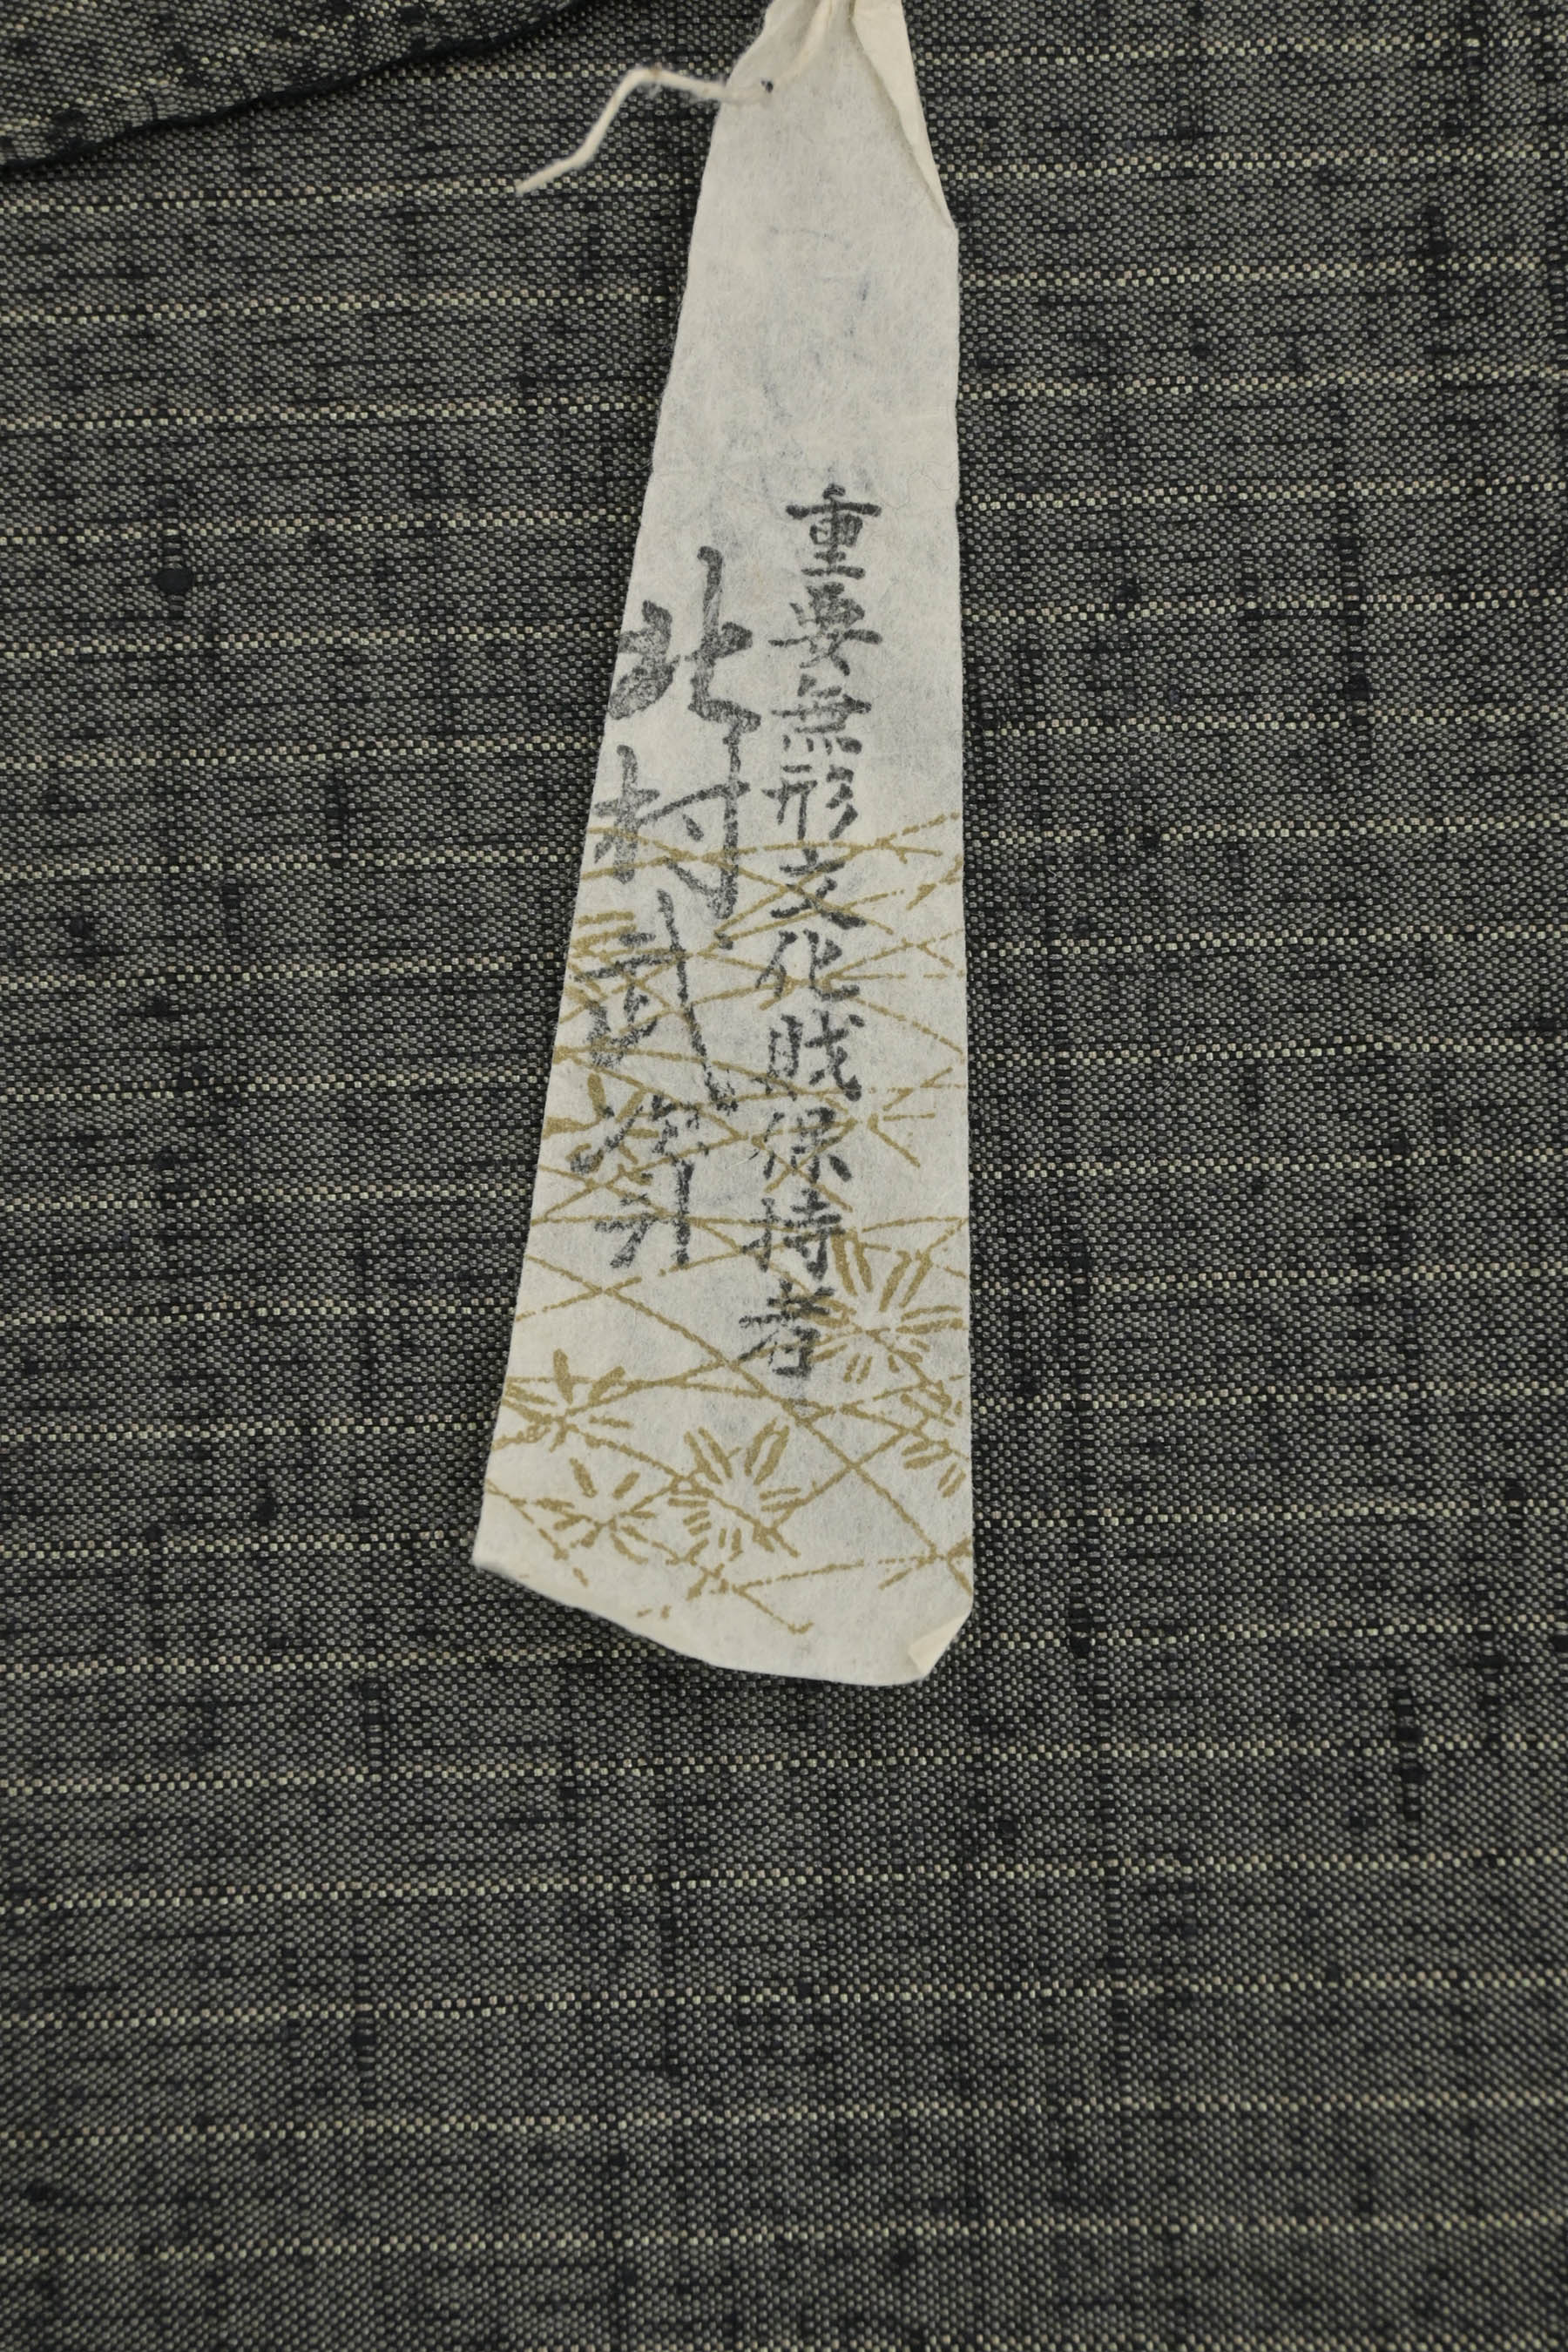 重要無形文化財保持者
北村武資